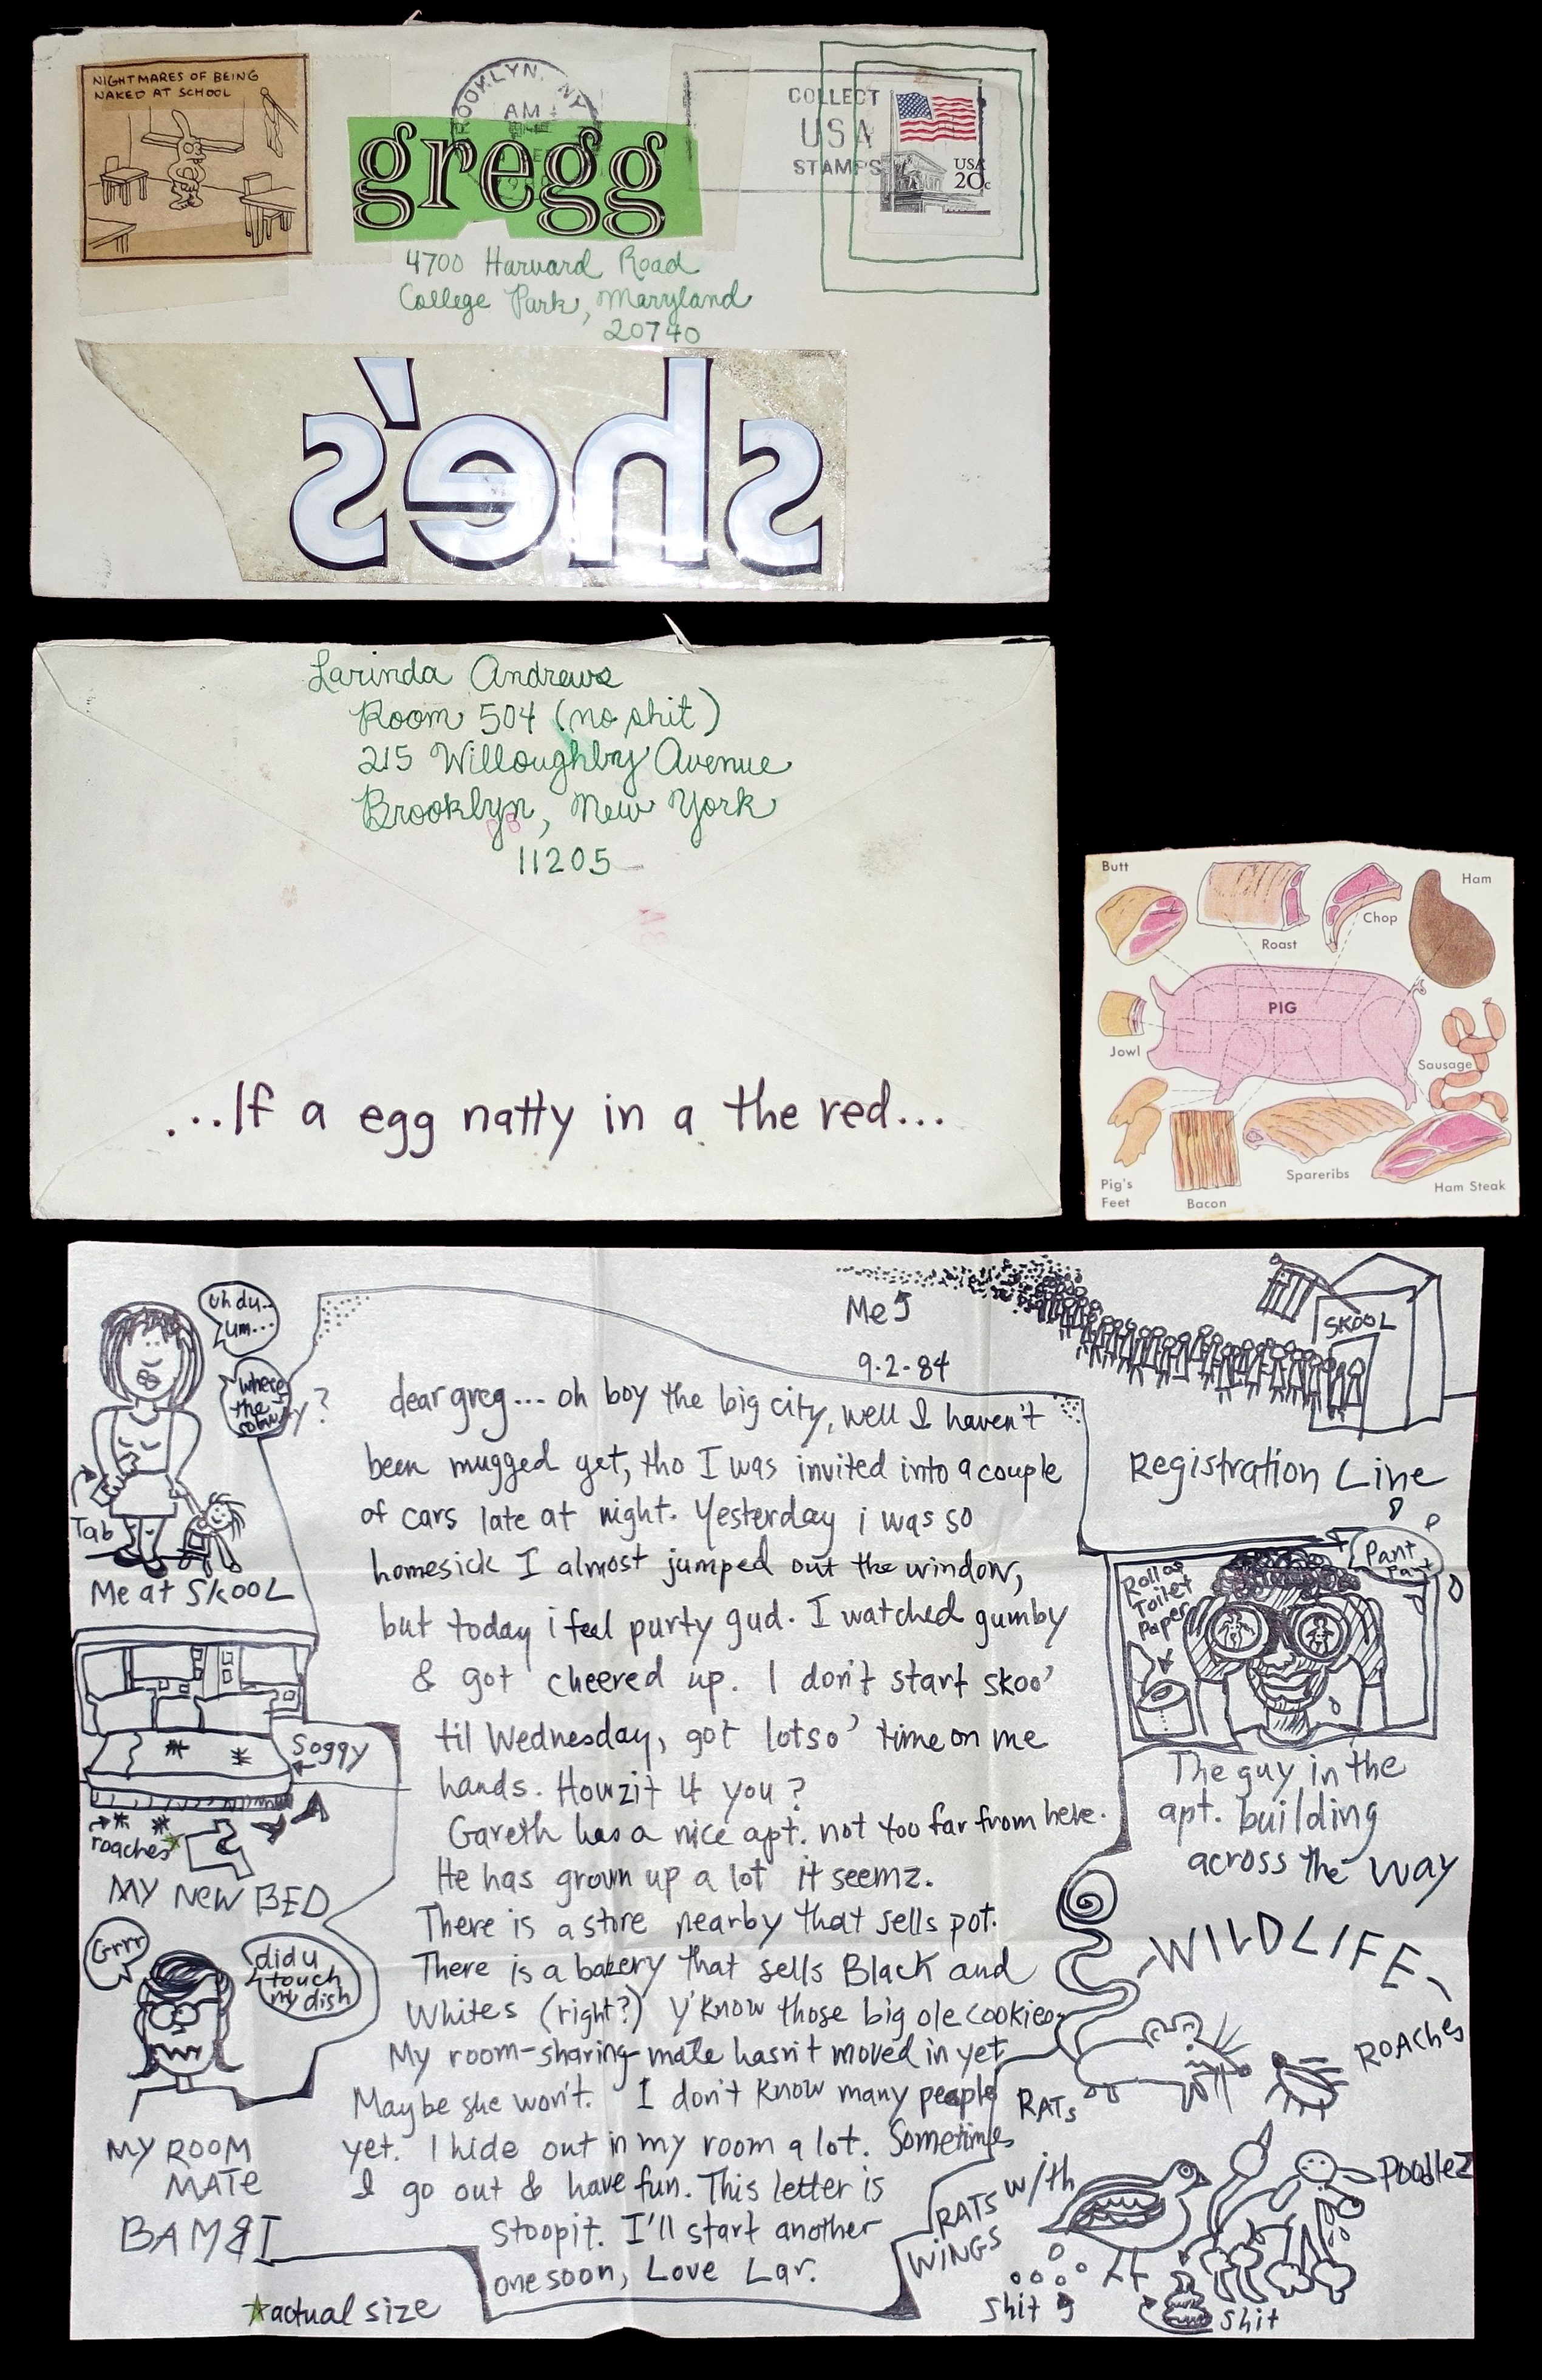 NIGHTMARES OF BEING
NAKED AT SCHOOL
BROOKLYN, NY
AM
COLLECT
USA
STAMPS
USA
20c
gregg
4700 Harvard Road
College Park, Maryland
20740
she's
Larinda Andrews
Room 504 (no shit)
215 Willoughby Avenue
Brooklyn, New York
11205
...If a egg natty in a the red...
Butt
Roast
Chop
Ham
PIG
Jowl
Sausage
Pig's
Feet
Bacon
Spareribs
Ham Steak
uh du..
um...
where's
the
?
Tab
Me at SkOOL
Soggy
roaches
MY NEW BED
Grrr
did u
touch
my dish
MY ROOM
MATE
BAMBI
☆actual size
Me
9.2.84
dear greg... oh boy the big city, well I haven't
been mugged yet, tho I was invited into a couple
of cars late at night. Yesterday i was so
homesick I almost jumped out the window,
but today i feel purty gud. I watched gumby
& got cheered up. I don't start skoo'
til Wednesday, got lotso' time on me
hands. Howzit 4 you?
Gareth has a nice apt. not too far from here.
He has grown up a lot it seemz.
There is a store nearby that sells pot.
There is a bakery that sells Black and
Whites (right?) y'know those big ole cookies
My room-sharing-mate hasn't moved in yet
Maybe she won't. I don't know many people
yet. I hide out in my room a lot. Sometimes
I go out & have fun. This letter is
stoopit. I'll start another
one soon, Love Lar.
SKOOL
Registration Line
Roll of
Toilet
Paper
Pant
Pant
The guy in the
apt. building
across the way
WILDLIFE
RATs
ROAChes
RATS with
WINGS
POODLEZ
Shit
Shit